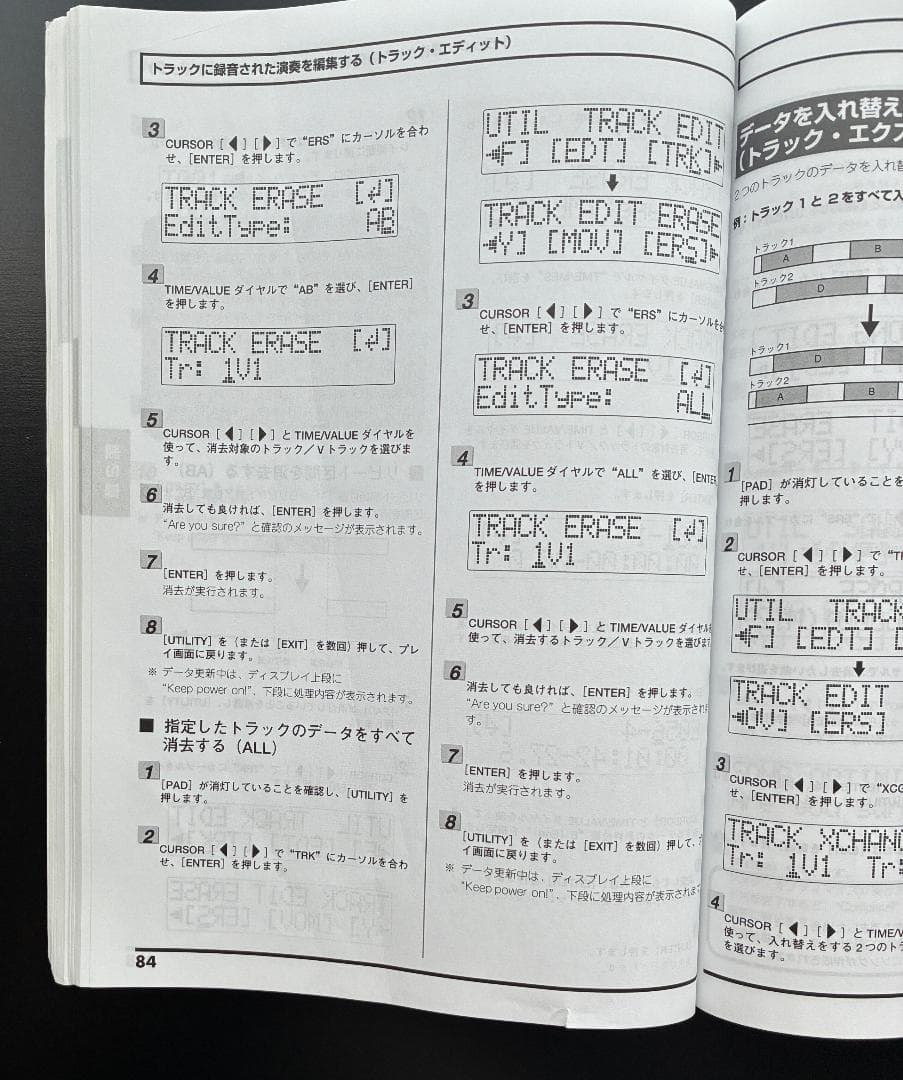 トラックに録音された演奏を編集する（トラック・エディット）
3
CURSOR［◀］［▶］で“ERS”にカーソルを合わ
せ、［ENTER］を押します。
TRACK ERASE [↲]
EditType: AB
4
TIME/VALUE ダイヤルで “AB” を選び、［ENTER］
を押します。
TRACK ERASE [↲]
Tr: 1V1
5
CURSOR［◀］［▶］とTIME/VALUEダイヤルを
使って、消去対象のトラック／Vトラックを選びま
す。
6
消去しても良ければ、［ENTER］を押します。
“Are you sure?” と確認のメッセージが表示されます。
7
［ENTER］を押します。
消去が実行されます。
8
［UTILITY］を（または［EXIT］を数回）押して、プレ
イ画面に戻ります。
※ データ更新中は、ディスプレイ上段に
“Keep power on!”、下段に処理内容が表示されます。
■ 指定したトラックのデータをすべて
消去する（ALL）
1
［PAD］が消灯していることを確認し、［UTILITY］を
押します。
2
CURSOR［◀］［▶］で“TRK”にカーソルを合わ
せ、［ENTER］を押します。
84
UTIL TRACK EDIT
◀F] [EDT] [TRK]▶
TRACK EDIT ERASE
◀Y] [MOV] [ERS]▶
3
CURSOR［◀］［▶］で “ERS” にカーソルを合
せ、［ENTER］を押します。
TRACK ERASE [↲]
EditType: ALL
4
TIME/VALUE ダイヤルで “ALL” を選び、［ENTE
を押します。
TRACK ERASE [↲]
Tr: 1V1
5
CURSOR［◀］［▶］とTIME/VALUE ダイヤル
使って、消去するトラック／V トラックを選びま
6
消去しても良ければ、［ENTER］を押します。
“Are you sure?” と確認のメッセージが表示され
す。
7
［ENTER］を押します。
消去が実行されます。
8
［UTILITY］を（または［EXIT］を数回）押して、
イ画面に戻ります。
※ データ更新中は、ディスプレイ上段に
“Keep power on!”、下段に処理内容が表示されま
データを入れ替え
（トラック・エクス
2つのトラックのデータを入れ替
例：トラック1と2をすべて入
トラック1
A B
トラック2
D
トラック1
D
トラック2
A B
1
［PAD］が消灯していることを
押します。
2
CURSOR［◀］［▶］で “T
せ、［ENTER］を押します。
UTIL TRACK
◀F] [EDT] [
TRACK EDIT
◀OV] [ERS]
3
CURSOR［◀］［▶］で “XC
せ、［ENTER］を押します。
TRACK XCHAN
Tr: 1V1 Tr:
4
CURSOR［◀］［▶］とTIME/V
使って、入れ替えをする2つのト
を選びます。